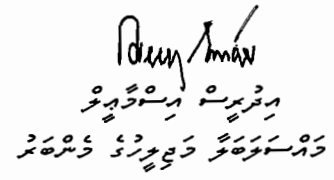 އިދުރީސް އިސްމާޢީލް
މައްސަލަބަލާ މަޖިލީހުގެ މެންބަރު